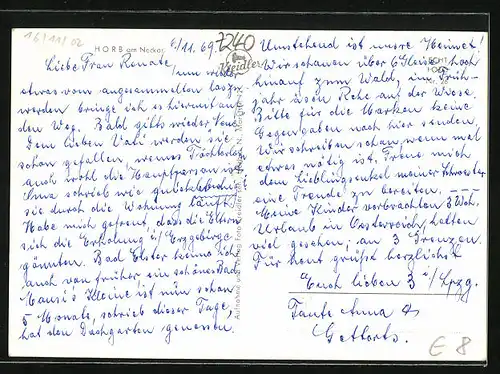 16/11/02
HORB am Neckar
6/11.69.
7240
Kreidler
Liebe Frau Renate,
nun wieder
etwas vom angesammelten loszu-
werden bringe ich es hiermit auf
den Weg. Bald gibts wieder Neues
Dem lieben Vati werden sie
schon gefallen, wenns Töchterlein
auch wohl die Hauptperson ist
Oma schrieb wie
sie durch die Wohnung läuft.
Habe mich gefreut dass die Eltern
sich die Erholung i/ Erzgebirge
gönnten. Bad Elster kenne ich
auch von früher ein schönes Bad
Mausi's Kleine ist nun schon
5 Monate, schrieb dieser Tage,
hat den Dachgarten genossen.
Umstehend ist unsre Heimat!
Wir schauen über Gleise hoch
hinauf zum Wald, im Früh-
jahr äsen Rehe auf der Wiese.
Bitte für die Marken keine
Gegengaben nach hier senden.
Wir schreiben schon wenn mal
etwas nötig ist. Freue mich
dem Lieblingsenkel meiner Schwester
eine Freude zu bereiten. ---
Meine Kinder verbrachten 3 Woh.
Urlaub in Oesterreich, hatten
viel gesehen, an 3 Grenzen.
Für heut grüßt herzlichst
Euch lieben 3 i/ Lpzg.
Tante Anna &
E 8